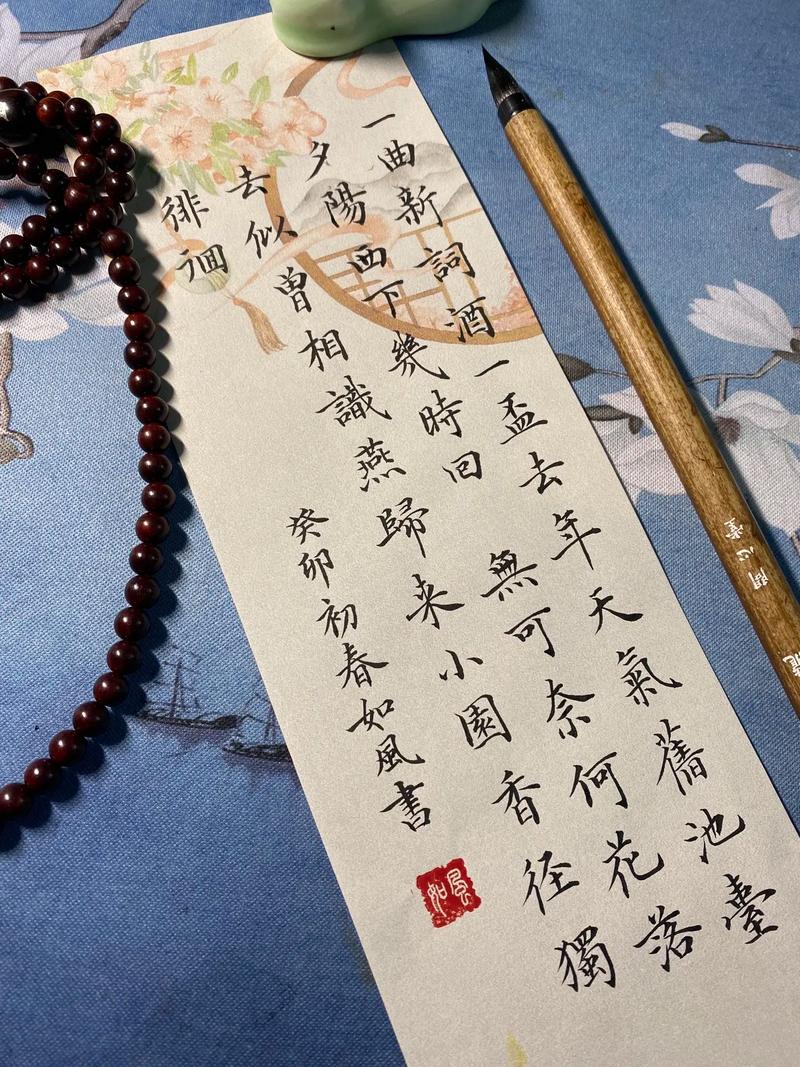 一曲新詞酒一盃去年天氣舊池臺
夕陽西下幾時回 無可奈何花落
去似曾相識燕歸来小園香径獨
徘徊
癸卯初春如風書
如風
問心堂